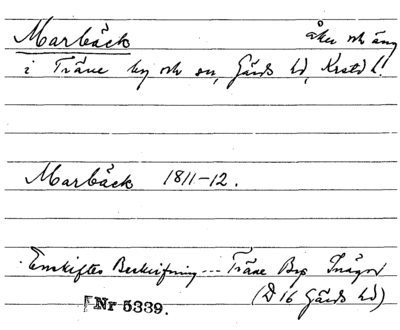 Marbäck åker och äng
i Träne by och sn, Gärds hd, Krstd l.
Marbäck 1811-12.
Enskiftes Beskrifning --- Träne Bys Inägor
(D 16 Gärds hd)
Nr 5339.